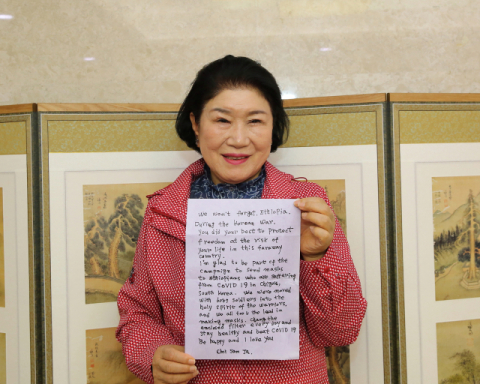 We won't forget, Ethiopia.
During the Korean War,
you did your best to protect
freedom at the risk of
your life in this faraway
country.
I'm glad to be part of the
campaign to send masks
to Ethiopians who are suffering
from COVID 19 in
South Korea. We were moved
with boys soldiers into the
holy spirit of the warriors,
and we all took the lead in
making masks. Change the
enclosed filter every day and
stay healthy and beat COVID 19
Be happy and I love you
Choi Soon Ja.